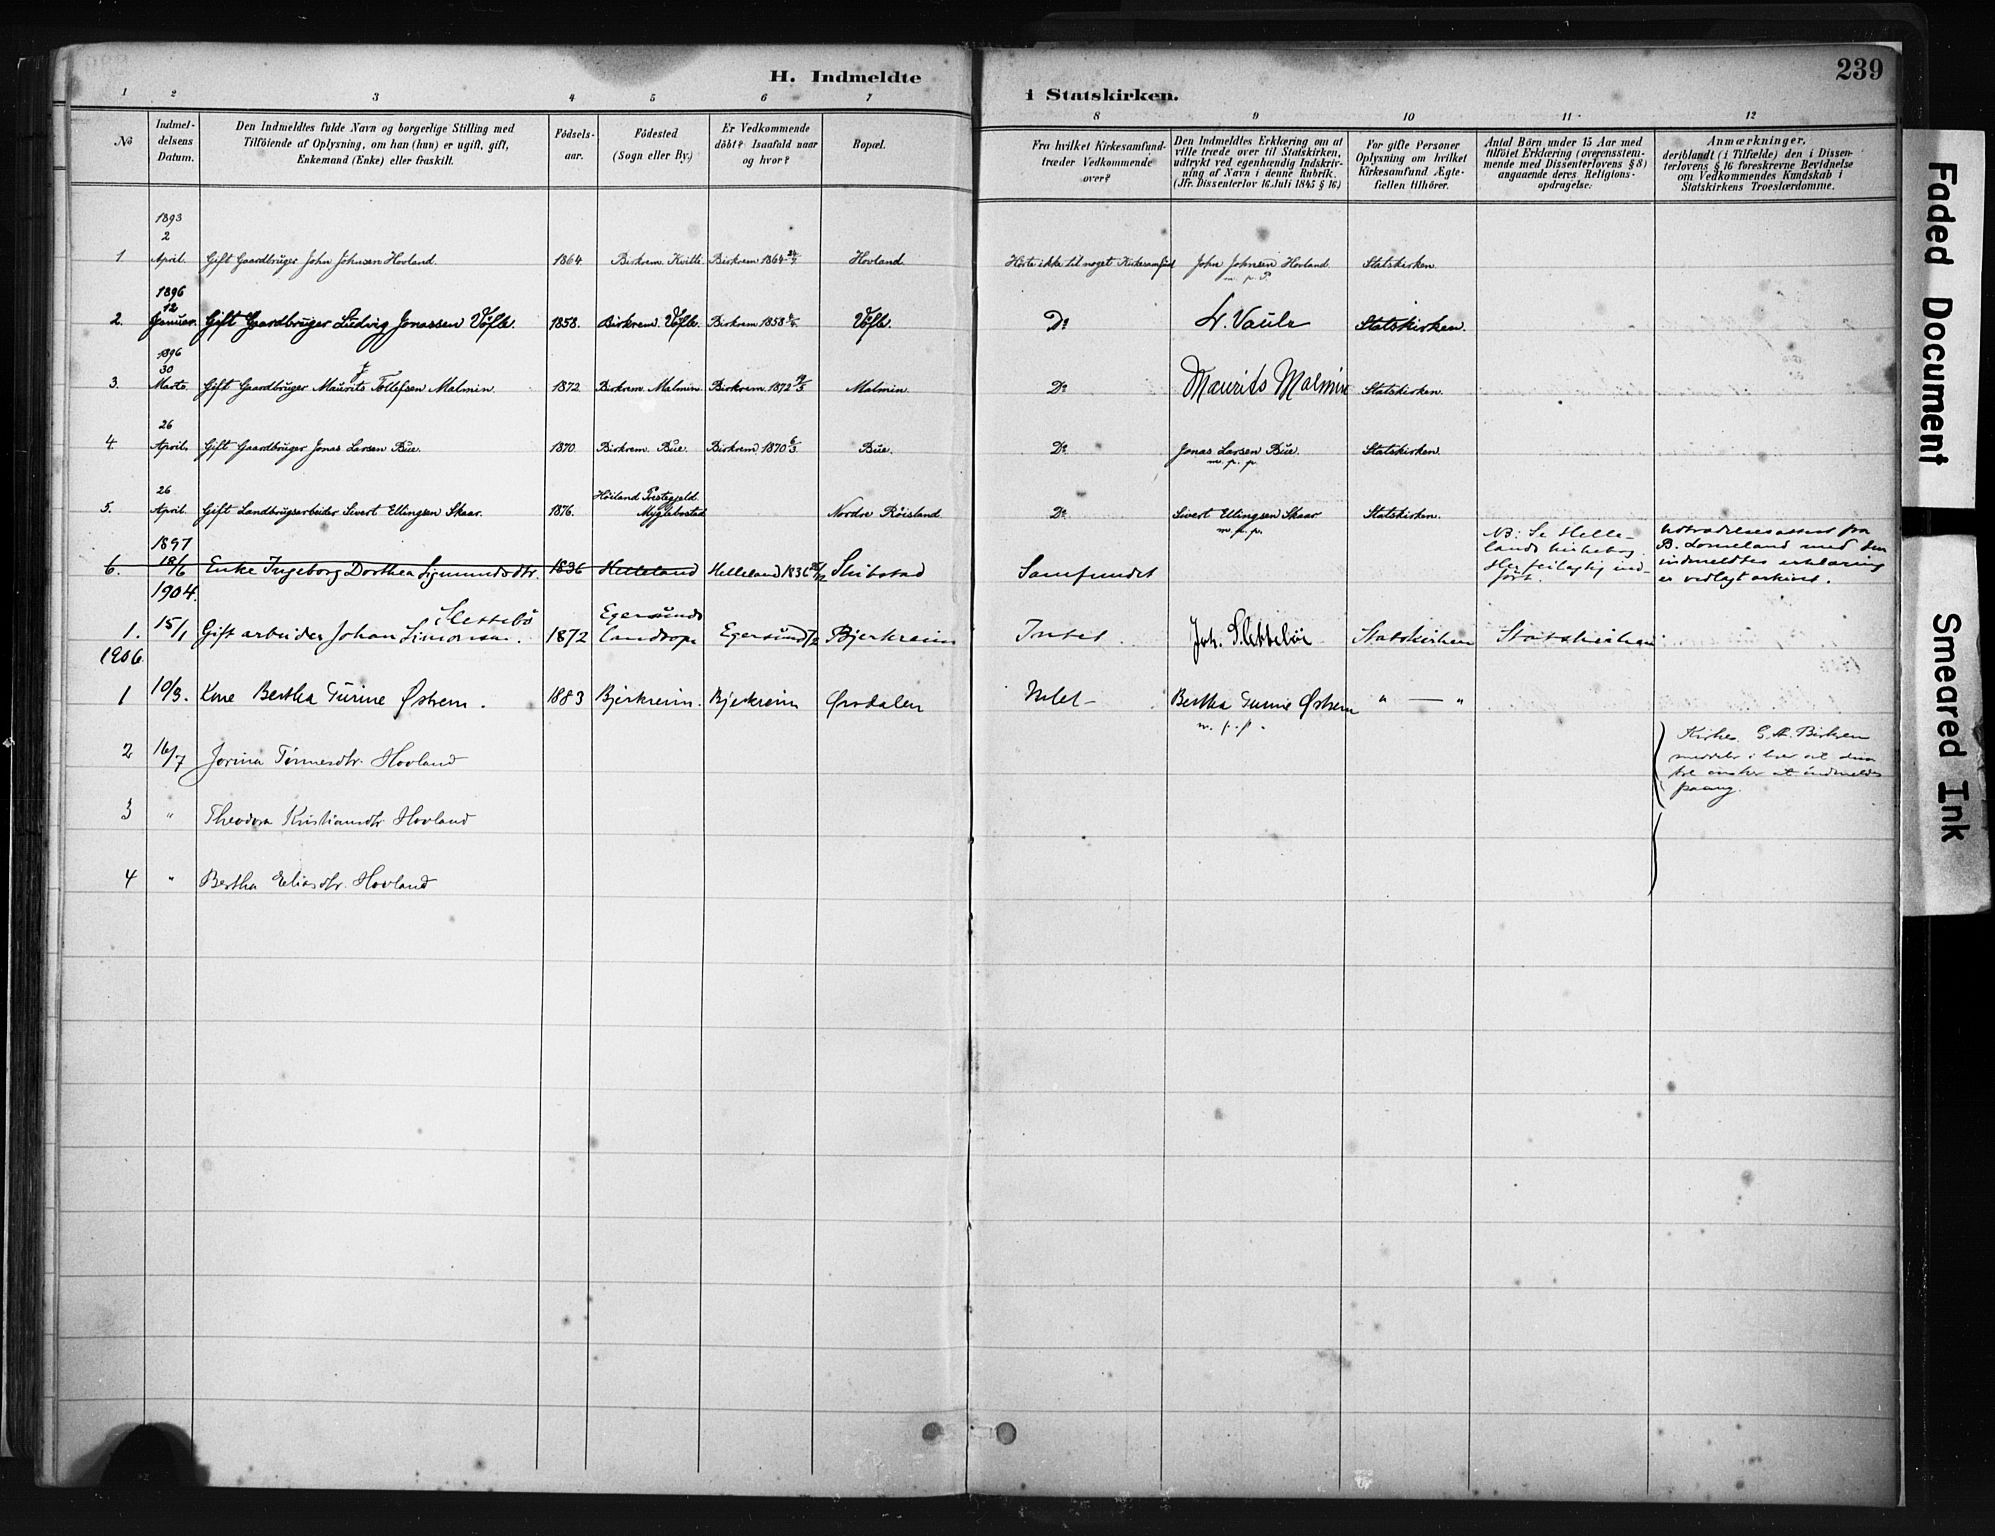 H. Indmeldte
i Statskirken.
239
1 2 3 4 5 6 7
8 9 10 11 12
No
Indmel-
delsens
Datum.
Den Indmeldtes fulde Navn og borgerlige Stilling med
Tilföiende af Oplysning, om han (hun) er ugift, gift,
Enkemand (Enke) eller fraskilt.
Födsels-
aar.
Födested
(Sogn eller By.)
Er Vedkommende
döbt? Isaafald naar
og hvor?
Bopæl.
Fra hvilket Kirkesamfund
træder Vedkommende
over?
Den Indmeldtes Erklæring om at
ville træde over til Statskirken,
udtrykt ved egenhændig Indskriv-
ning af Navn i denne Rubrik.
(Jfr. Dissenterlov 16 Juli 1845 § 16)
For gifte Personer
Oplysning om hvilket
Kirkesamfund Ægte-
fællen tilhörer.
Antal Börn under 15 Aar med
tilföiet Erklæring (overensstem-
mende med Dissenterlovens § 8)
angaaende deres Religions-
opdragelse.
Anmærkninger,
deriblandt (i Tilfælde) den i Dissen-
terlovens § 16 foreskrevne Bevidnelse
om Vedkommendes Kundskab i
Statskirkens Troeslærdomme.
1893
2
1 April. Gift Gaardbruger John Johnsen Hovland. 1864. Birkrem. Kvitli Birkrem 1864 Hovland Hörte ikke til noget Kirkesamfund John Johnsen Hovland Statskirken.
m. p. P.
1896
12
2. Januar. Gift Gaardbruger Ludvig Jonassen Vöfle. 1858. Birkrem. Vöfle. Birkrem 1858 Vöfle. Do L. Vaule Statskirken.
1896
30
3. Marts. Gift Gaardbruger Maurits Tollefsen Malmin. 1872 Birkrem. Malmin. Birkrem. 1872 Malmin. Do Maurits Malmin Statskirken.
26
4. April. Gift Gaardbruger Jonas Larsen Bue. 1870. Birkrem. Bue. Birkrem 1870 6/3 Bue. Do Jonas Larsen Bue. Statskirken.
m. p. p.
26
Höiland Prestegjeld.
5. April. Gift Landbrugsarbeider Sivert Ellingsen Skaar. 1876. Myglebostad Nordre Röisland. Do Sivert Ellingsen Skaar Statskirken.
m. p. p.
1897
6. 18/6 Enke Ingeborg Dorthea Sigmundsdtr. 1836 Helleland Helleland 1836 Samfundet
NB: Se Helle-
lands kirkebog.
Her feilagtig ind-
ført.
Udtrædelsesattest fra
B. med den
indmeldtes erklæring
er vedlagt arkivet.
1904.
Slettebö
Egersunds
1. 15/1 Gift arbeider Johan Simonsen. 1872 landsogn Egersund Bjerkreim Intet. Joh. Slettebö Statskirken Statskirken
1906
1 10/3. Kone Bertha Turine Østrem. 1883 Bjerkreim. Bjerkreim Ørsdalen Intet - Bertha Turine Østrem " — "
m. p. p.
2 16/7 Jorina Tønnesdtr. Hovland
Kirkes. Birkrem
meddeler i brev at disse
tre ønsker at indmeldes
paany.
3 " Theodora Kristiansdtr. Hovland
4 " Bertha Eliasdtr. Hovland
Faded Document
Smeared Ink